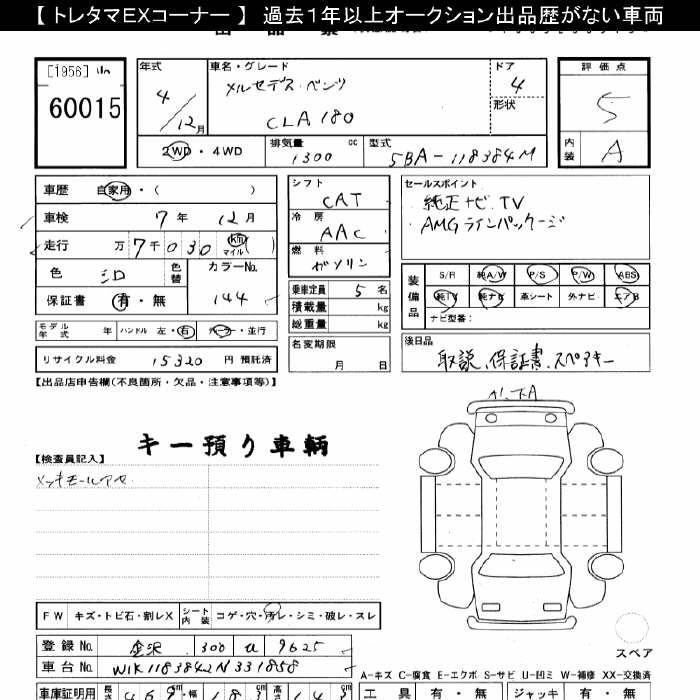 【 トレタマEXコーナー 】 過去1年以上オークション出品歴がない車両
[1956]
60015
年式
4/12月
車名・グレード
メルセデス・ベンツ
CLA 180
ドア
4
形状
評価点
5
内装
A
2WD・4WD
排気量
1300 cc
型式
5BA-118384M
車歴 自家用・( )
車検 7年 12月
走行 万7千030 km マイル
色
色替
カラーNo.
144
保証書 有・無
モデル年式 年 ハンドル 左・右 ディーラー・並行
リサイクル料金 15320 円 預託済
シフト
CAT
冷房
AAC
燃料
ガソリン
乗車定員 5 名
積載量 kg
総重量 kg
名変期限
月 日
セールスポイント
純正ナビ TV
AMGラインパッケージ
装備品
S/R 純A/W P/S P/W ABS
純TV 純ナビ 革シート 外ナビ エアB
ナビ型番:
後日品
取説、保証書、スペアキー
【出品店申告欄(不良箇所・欠品・注意事項等)】
キー預り車輌
【検査員記入】
メッキモールアセ
FW キズ・トビ石・割レX シート内装 コゲ・穴・汚レ・シミ・破レ・スレ
スペア
登録No. 金沢 300
9625
車台No. W1K1183842N331858
A-キズ C-腐食 E-エクボ S-サビ U-凹ミ W-補修 XX-交換済
車庫証明用
工具 有・無 ジャッキ 有・無